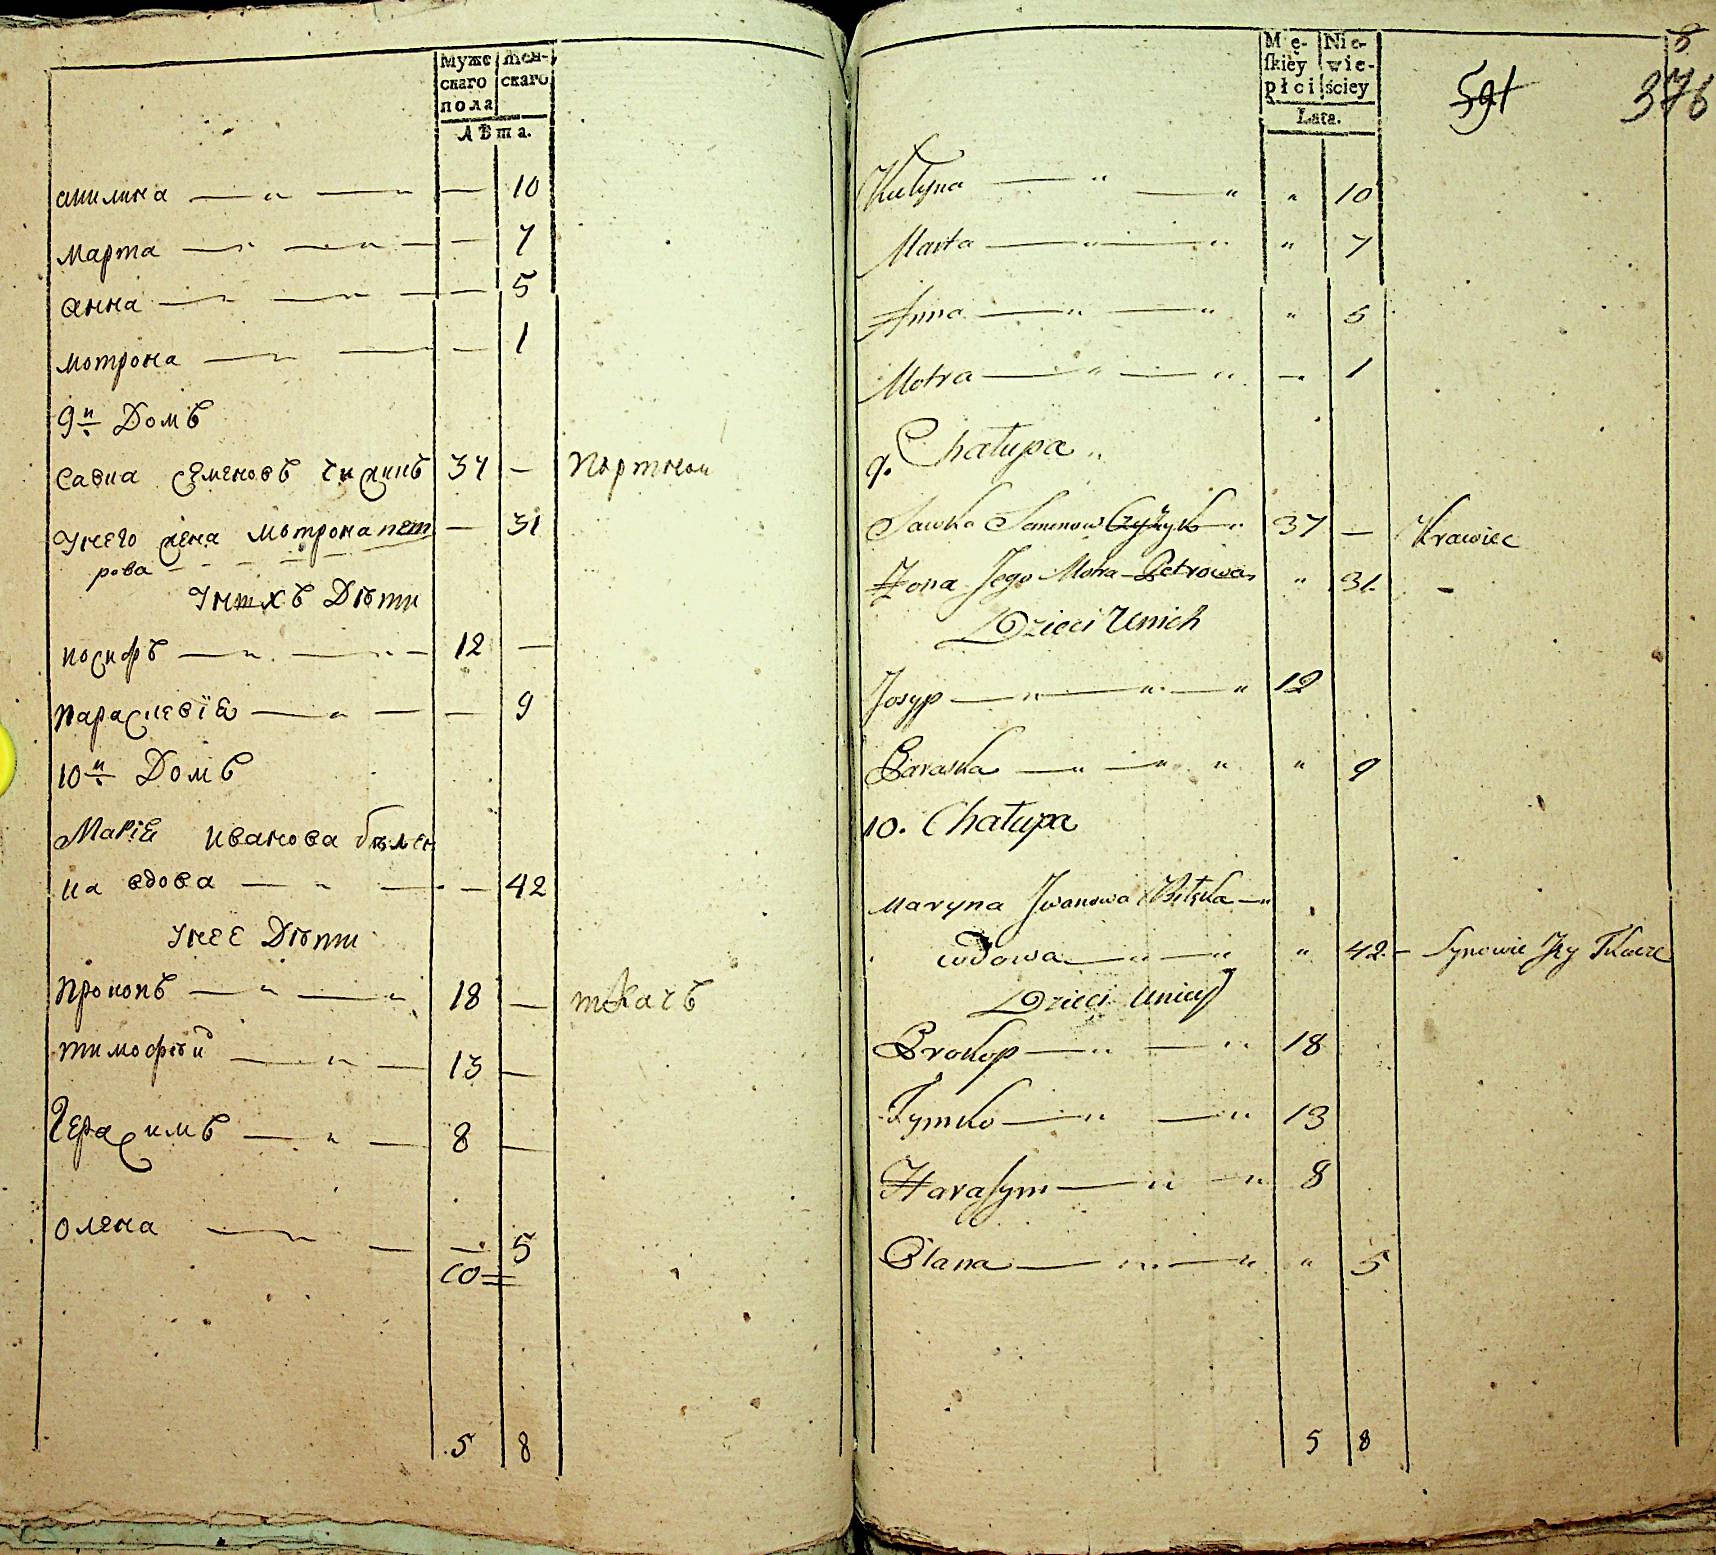 Муже
скаго
пола
Жен-
скаго
Лѣта.
акилина — „ — — 10
марта — „ — „ — — 7
анна — „ — „ — — 5
мотрона — „ — — 1
9й Домъ
Савка Семеновъ 37 — портной
Унего жена мотрона пет — 31
рова
Унихъ Дѣти
иосифъ — „ — „ — 12 —
параскевїя — „ — — 9
10й Домъ
Марїя иванова билец
ка вдова — „ — — 42
Унее Дѣти
прокопъ — „ — „ 18 — ткачъ
тимофѣй — „ — 13 —
Герасимъ — „ — 8 —
олена — „ — — 5
5 8
Mę-
skiey
płci
Nie-
wie-
ściey
Lata.
591
376
Kulyna — „ — „ „ 10
Marta — „ — „ „ 7
Anna — „ — „ „ 5
Motra — „ — „ — 1
9. Chałupa „
Sawka Semenow Czyżyk „ 37 — Krawiec
Żona Jego Motra Petrowa „ 31. –
Dzieci Unich
Josyp — „ — „ — „ 12
Paraska — „ — „ „ „ 9
10. Chałupa
Maryna Jwanowa Bilecka — „
wdowa — „ — „ „ 42 – Synowie Jey Tkacze
Dzieci Uniey
Prokop — „ — „ 18
Tymko — „ — „ 13
Harasym — „ — „ 8
Olana — „ — „ „ 5
5 8